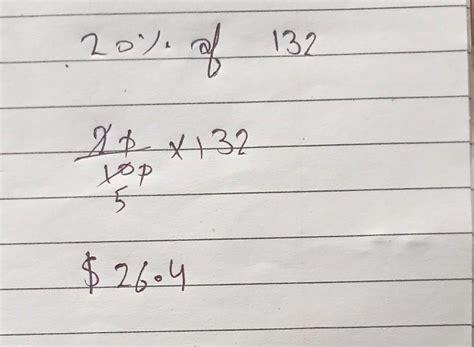 20% of 132
20/100 × 132
5
$ 26.4